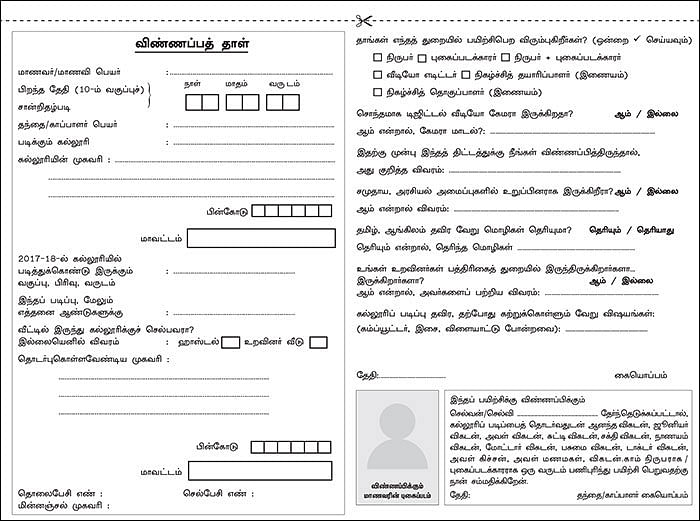 விண்ணப்பத் தாள்
மாணவர்/மாணவி பெயர் :
பிறந்த தேதி (10-ம் வகுப்புச் சான்றிதழ்படி
நாள் மாதம் வருடம்
தந்தை/காப்பாளர் பெயர் :
படிக்கும் கல்லூரி :
கல்லூரியின் முகவரி :
பின்கோடு
மாவட்டம்
2017-18-ல் கல்லூரியில்
படித்துக்கொண்டு இருக்கும் :
வகுப்பு, பிரிவு, வருடம்
இந்தப் படிப்பு, மேலும்
எத்தனை ஆண்டுகளுக்கு :
வீட்டில் இருந்து கல்லூரிக்குச் செல்பவரா?
இல்லையெனில் விவரம் : ஹாஸ்டல் உறவினர் வீடு
தொடர்புகொள்ளவேண்டிய முகவரி :
பின்கோடு
மாவட்டம்
தொலைபேசி எண் : செல்பேசி எண் :
மின்னஞ்சல் முகவரி :
தாங்கள் எந்தத் துறையில் பயிற்சிபெற விரும்புகிறீர்கள்? (ஒன்றை ✓ செய்யவும்)
நிருபர் புகைப்படக்காரர் நிருபர் + புகைப்படக்காரர்
வீடியோ எடிட்டர் நிகழ்ச்சித் தயாரிப்பாளர் (இணையம்)
நிகழ்ச்சித் தொகுப்பாளர் (இணையம்)
சொந்தமாக டிஜிட்டல் வீடியோ கேமரா இருக்கிறதா? ஆம் / இல்லை
ஆம் என்றால், கேமரா மாடல்?:
இதற்கு முன்பு இந்தத் திட்டத்துக்கு நீங்கள் விண்ணப்பித்திருந்தால்,
அது குறித்த விவரம்:
சமுதாய, அரசியல் அமைப்புகளில் உறுப்பினராக இருக்கிறீரா? ஆம் / இல்லை
ஆம் என்றால் விவரம்:
தமிழ், ஆங்கிலம் தவிர வேறு மொழிகள் தெரியுமா? தெரியும் / தெரியாது
தெரியும் என்றால், தெரிந்த மொழிகள்
உங்கள் உறவினர்கள் பத்திரிகைத் துறையில் இருந்திருக்கிறார்களா...
இருக்கிறார்களா? ஆம் / இல்லை
ஆம் என்றால், அவர்களைப் பற்றிய விவரம்:
கல்லூரிப் படிப்பு தவிர, தற்போது கற்றுக்கொள்ளும் வேறு விஷயங்கள்:
(கம்ப்யூட்டர், இசை, விளையாட்டு போன்றவை):
தேதி: கையொப்பம்
விண்ணப்பிக்கும்
மாணவரின் புகைப்படம்
இந்தப் பயிற்சிக்கு விண்ணப்பிக்கும்
செல்வன்/செல்வி தேர்ந்தெடுக்கப்பட்டால்,
கல்லூரிப் படிப்பைத் தொடர்வதுடன் ஆனந்த விகடன், ஜூனியர்
விகடன், அவள் விகடன், சுட்டி விகடன், சக்தி விகடன், நாணயம்
விகடன், மோட்டார் விகடன், பசுமை விகடன், டாக்டர் விகடன்,
அவள் கிச்சன், அவள் மணமகள், விகடன்.காம் நிருபராக /
புகைப்படக்காரராக ஒரு வருடம் பணிபுரிந்து பயிற்சி பெறுவதற்கு
நான் சம்மதிக்கிறேன்.
தேதி: தந்தை/காப்பாளர் கையொப்பம்